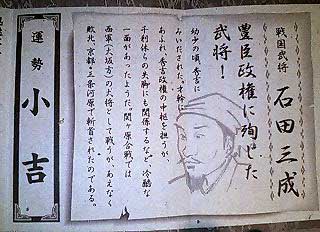 戦国武将
石田三成
豊臣政権に殉じた
武将!
幼少の頃、秀吉に
みいだされた。才幹に
あふれ、秀吉政権の中枢を担うが、
千利休らの失脚にも関係するなど、冷酷な
一面があったようだ。関ヶ原合戦では
西軍(大坂方)の大将として戦うが、あえなく
敗北、京都・三条河原で斬首されたのである。
運勢
小吉